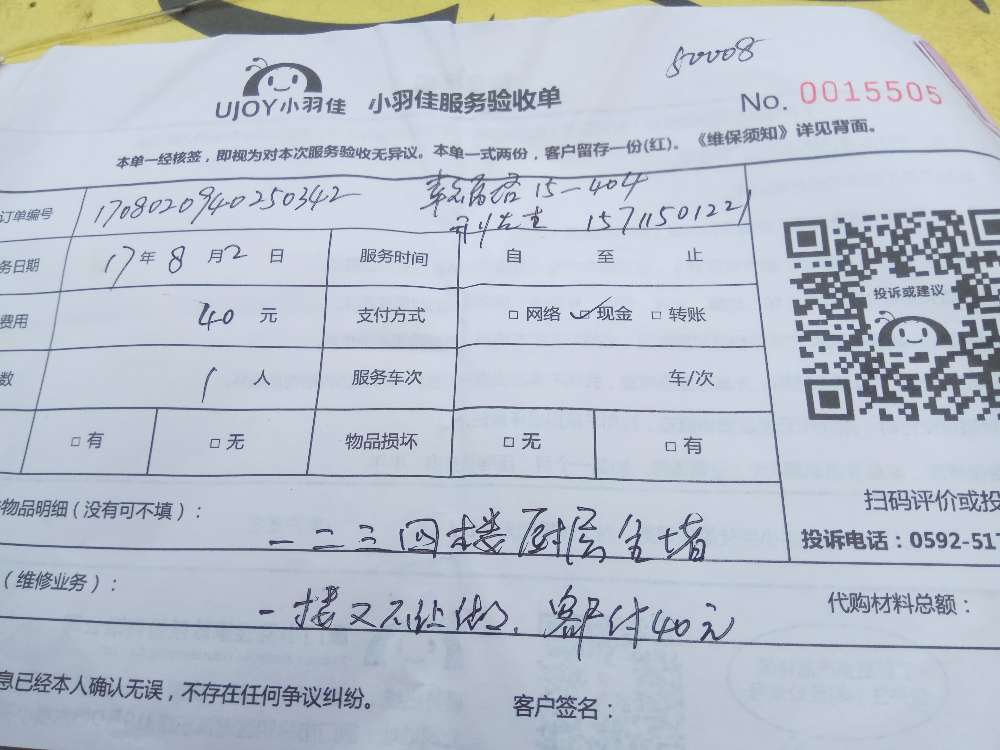 50008
UJOY小羽佳 小羽佳服务验收单 No. 0015505
本单一经核签，即视为对本次服务验收无异议。本单一式两份，客户留存一份(红)。《维保须知》详见背面。
订单编号 1708020940250342 15-404
15711501221
务日期 17年8月2日 服务时间 自 至 止
费用 40元 支付方式 □网络 ☑现金 □转账
数 1人 服务车次 车/次
□有 □无 物品损坏 □无 □有
投诉或建议
扫码评价或投
物品明细（没有可不填）：
投诉电话：0592-517
一二三四楼厨房全堵
（维修业务）： 代购材料总额：
一楼又不让做、客户付40元
息已经本人确认无误，不存在任何争议纠纷。
客户签名：